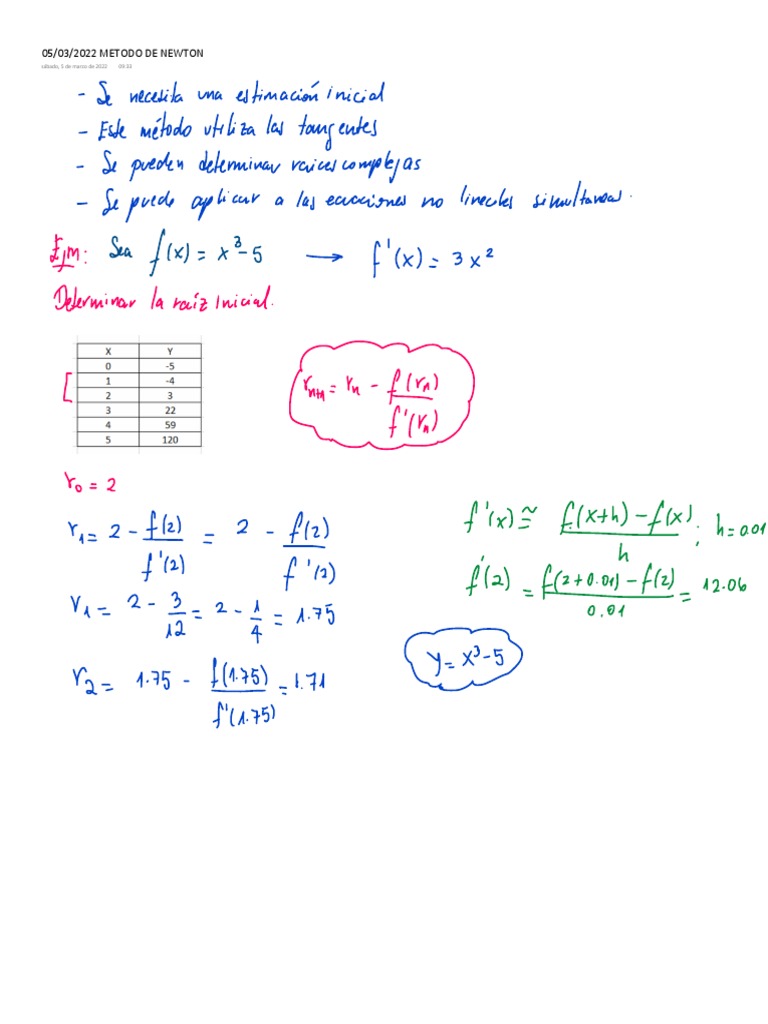 05/03/2022 METODO DE NEWTON
sábado, 5 de marzo de 2022 09:33
- Se necesita una estimación inicial
- Este método utiliza las tangentes
- Se pueden determinar raices complejas
- Se puede aplicar a las ecuaciones no lineales simultaneas.
Ejm: Sea f(x) = x³-5 → f'(x) = 3x²
Determinar la raíz inicial.
X Y
0 -5
1 -4
2 3
3 22
4 59
5 120
rₙ₊₁ = rₙ - f(rₙ)/f'(rₙ)
r₀ = 2
r₁ = 2 - f(2)/f'(2) = 2 - f(2)/f'(2)
r₁ = 2 - 3/12 = 2 - 1/4 = 1.75
r₂ = 1.75 - f(1.75)/f'(1.75) = 1.71
f'(x) ≅ f(x+h) - f(x)/h ; h=0.01
f'(2) = f(2+0.01) - f(2)/0.01 = 12.06
y = x³-5